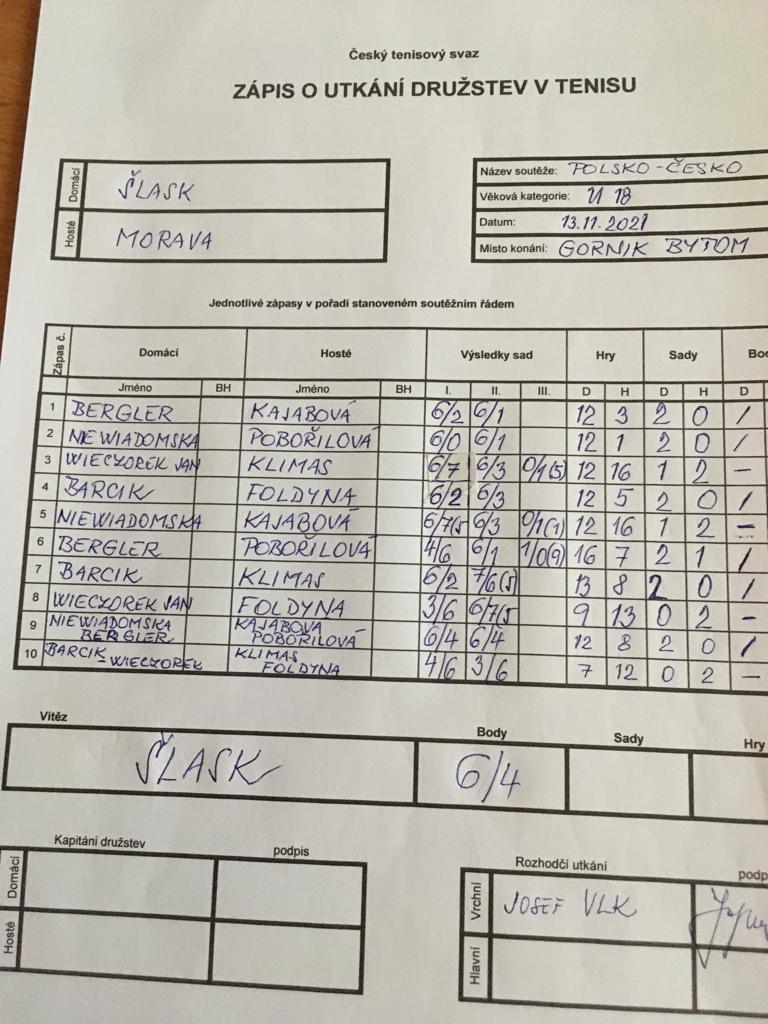 Český tenisový svaz
ZÁPIS O UTKÁNÍ DRUŽSTEV V TENISU
Domácí ŠLASK
Hosté MORAVA
Název soutěže: POLSKO-ČESKO
Věková kategorie: U 18
Datum: 13.11.2021
Místo konání: GORNIK BYTOM
Jednotlivé zápasy v pořadí stanoveném soutěžním řádem
Zápas č. Domácí Hosté Výsledky sad Hry Sady
Jméno BH Jméno BH I. II. III. D H D H D
1 BERGLER KAJABOVÁ 6/2 6/1 12 3 2 0 /
2 NIEWIADOMSKA POBOŘILOVÁ 6/0 6/1 12 1 2 0 /
3 WIECZOREK JAN KLIMAS 6/7 6/3 0/1(5) 12 16 1 2 –
4 BARCIK FOLDYNA 6/2 6/3 12 5 2 0 /
5 NIEWIADOMSKA KAJABOVÁ 6/7(5 6/3 0/1(1) 12 16 1 2 –
6 BERGLER POBOŘILOVÁ 4/6 6/1 1/0(9) 16 7 2 1 /
7 BARCIK KLIMAS 6/2 7/6(5) 13 8 2 0 /
8 WIECZOREK JAN FOLDYNA 3/6 6/7(5 9 13 0 2 –
9 NIEWIADOMSKA BERGLER KAJABOVA POBOŘILOVÁ 6/4 6/4 12 8 2 0 /
10 BARCIK – WIECZOREK KLIMAS FOLDYNA 4/6 3/6 7 12 0 2 –
Vítěz Body Sady Hry
ŠLASK 6/4
Kapitáni družstev podpis
Domácí
Hosté
Rozhodčí utkání
Vrchní JOSEF VLK
Hlavní